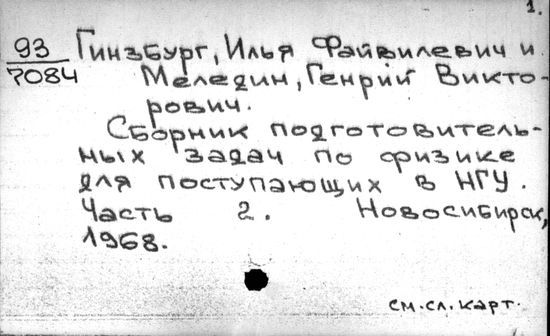 1.
93 Гинзбург, Илья Файвилевич и
7084 Меледин, Генрий Викто-
рович.
Сборник подготовитель-
ных задач по физике
для поступающих в НГУ.
Часть 2. Новосибирск,
1968.
см. сл. карт.